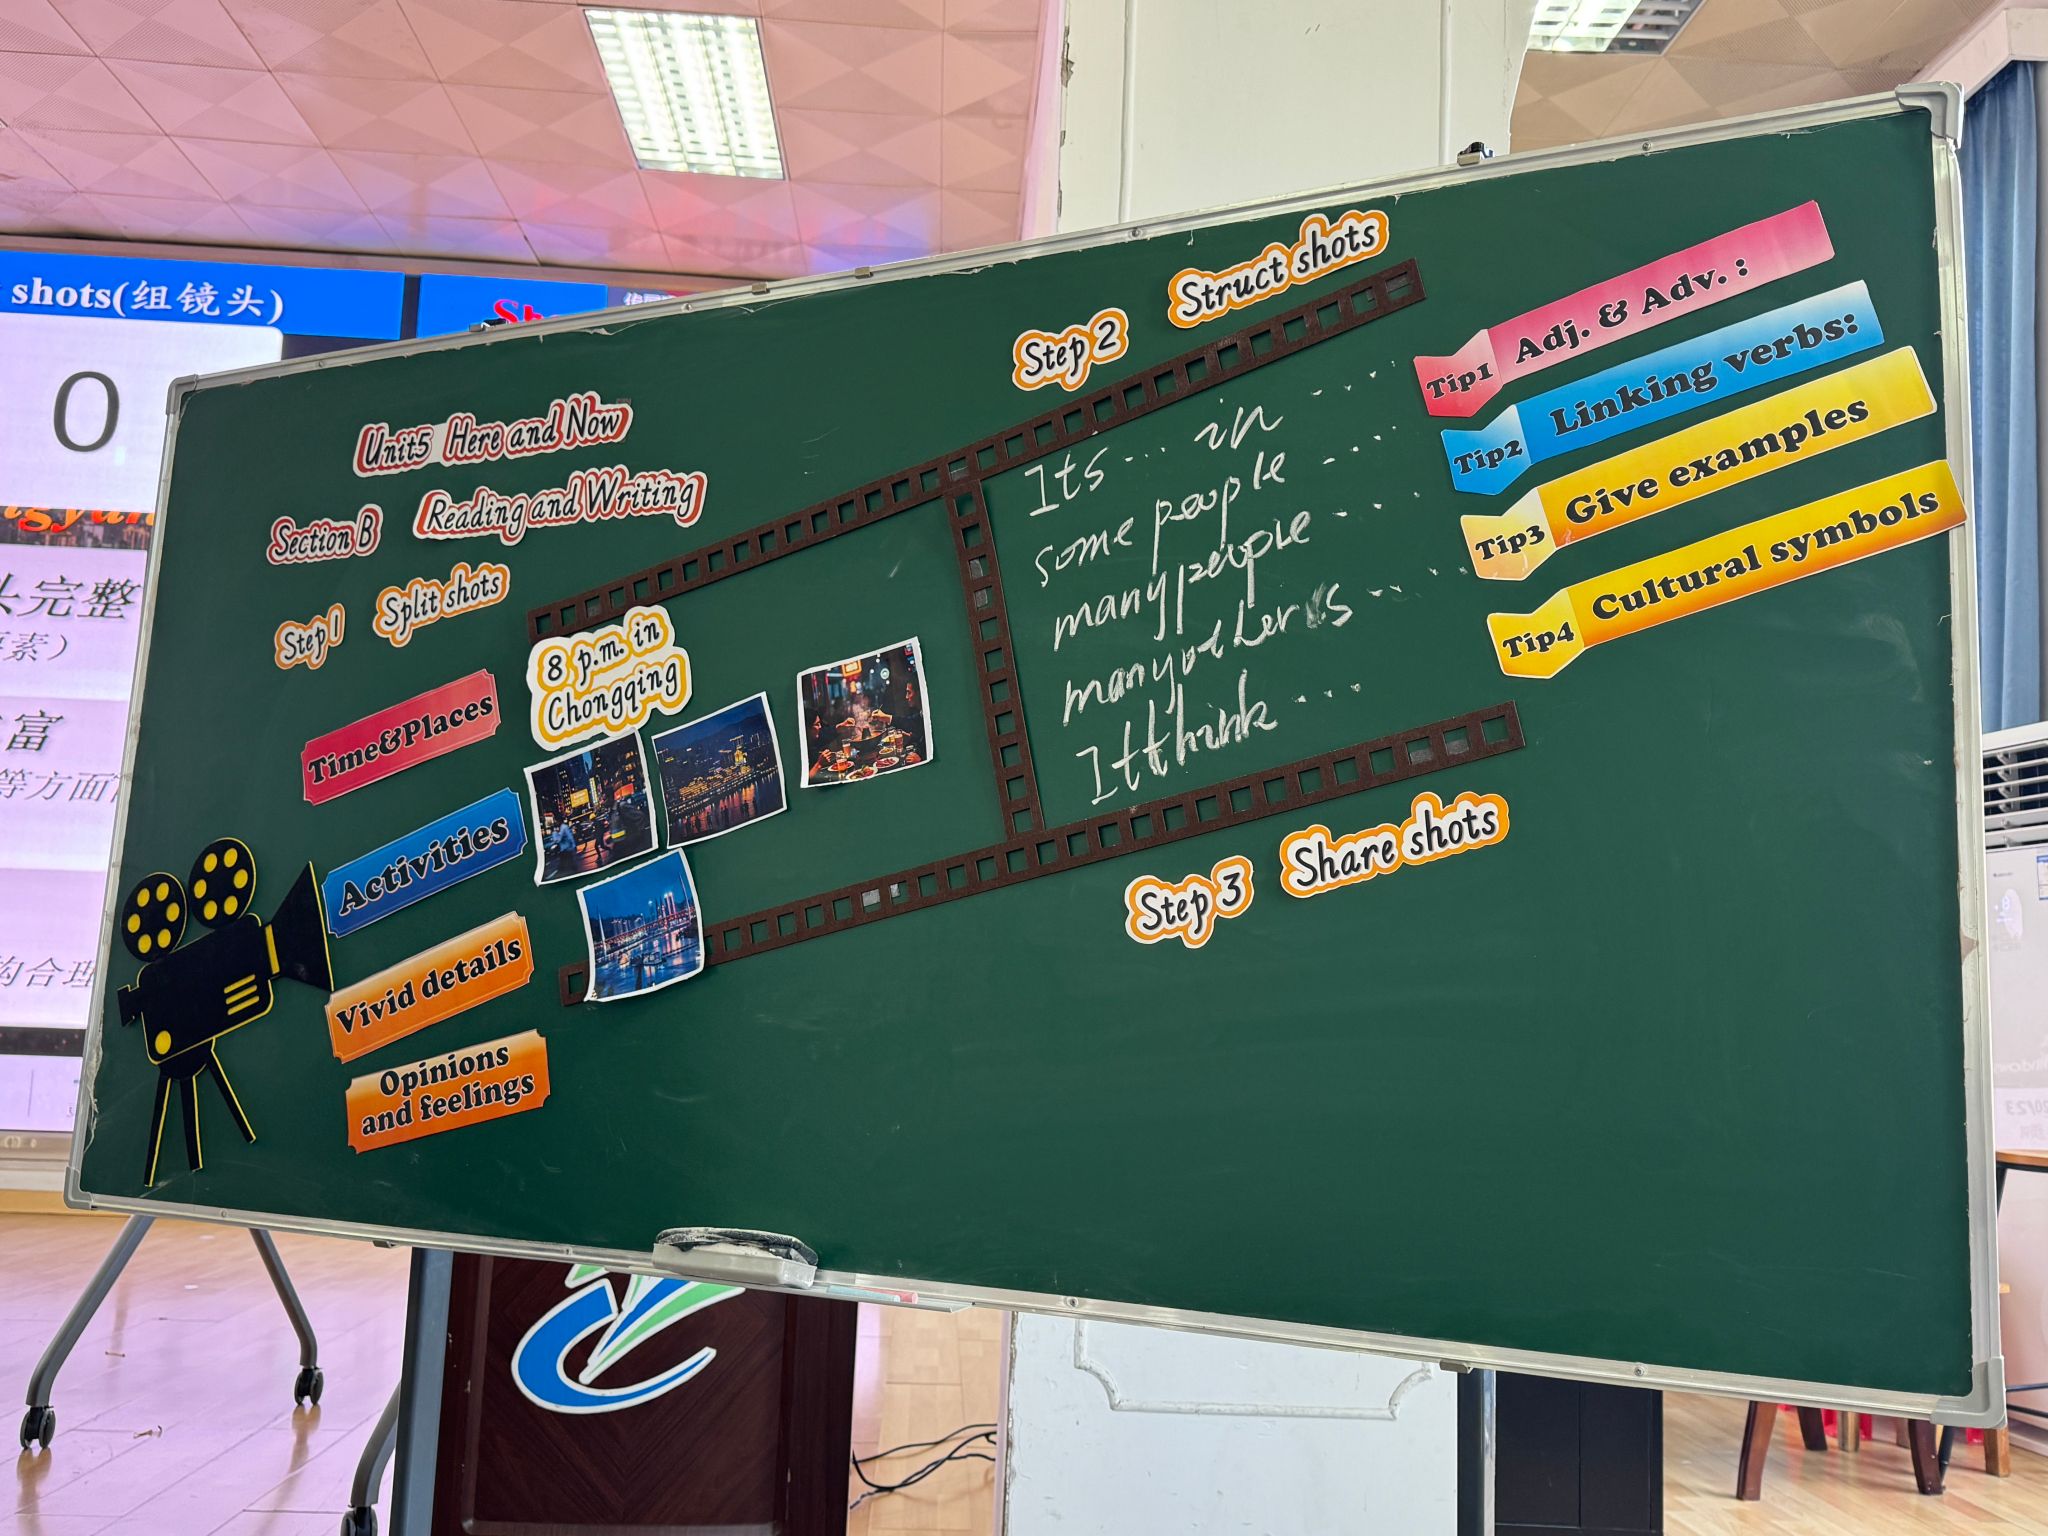 shots(组镜头)
0
头完整
素）
富
等方面
构合理
Unit5 Here and Now
Section B Reading and Writing
Step 1 Split shots
Time&Places
Activities
Vivid details
Opinions
and feelings
8 p.m. in
Chongqing
Step 2 Struct shots
Its ... in ....
some people ....
many people ....
many others ....
I think ....
Step 3 Share shots
Tip1 Adj. & Adv. :
Tip2 Linking verbs:
Tip3 Give examples
Tip4 Cultural symbols